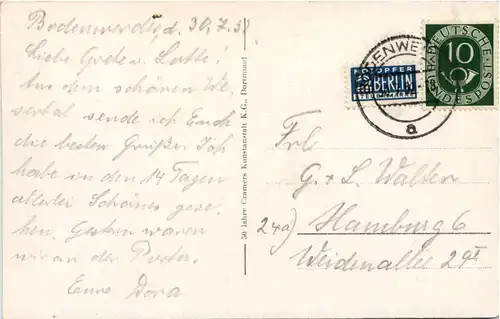 Bodenwerder d. 30.7.51
Liebe Grete u. Lotte!
Aus dem schönen We-
sertal sende ich Euch
die besten Grüße. Ich
habe in den 14 Tagen
allerlei Schönes gese-
hen. Gestern waren
wir an der Porta.
Eure Dora
50 Jahre Cramers Kunstanstalt K.G., Dortmund
NOTOPFER
BERLIN
DEUTSCHE
10
BUNDESPOST
a
Frl.
G. + L. Walter
24a) Hamburg 6
Weidenallee